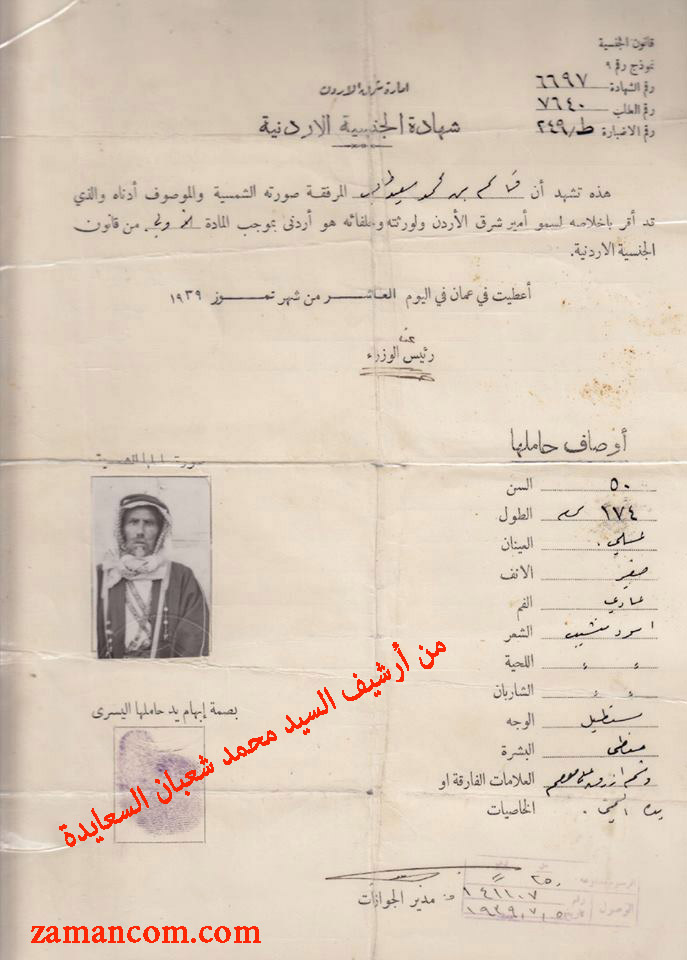 قانون الجنسية
نموذج رقم ٩
رقم الشهادة ٦٦٩٧
رقم الطلب ٧٦٤٠
رقم الاضبارة ط/٢٤٩
امارة شرق الاردن
شهادة الجنسية الاردنية
هذه تشهد أن قاسم بن محمد سعيد المرفقة صورته الشمسية والموصوف أدناه والذي
قد أقر باخلاصه لسمو أمير شرق الأردن ولورثته وخلفائه هو أردني بموجب المادة من قانون
الجنسية الاردنية.
أعطيت في عمان في اليوم العاشر من شهر تموز ١٩٣٩
عن
رئيس الوزراء
أوصاف حاملها
السن ٥٠
الطول ١٧٤ سم
العينان عسلي
الانف صغير
الفم عادي
الشعر اسود
اللحية " "
الشاربان " "
الوجه مستطيل
البشرة حنطي
العلامات الفارقة او
الخاصيات يده اليمنى
صورة حاملها الشمسية
بصمة إبهام يد حاملها اليسرى
من أرشيف السيد محمد شعبان السعايدة
عن مدير الجوازات
٢٥٠
رقم ١٤١١٠٧
الوصول تاريخ ١٩٣٩/٧/٥
zamancom.com